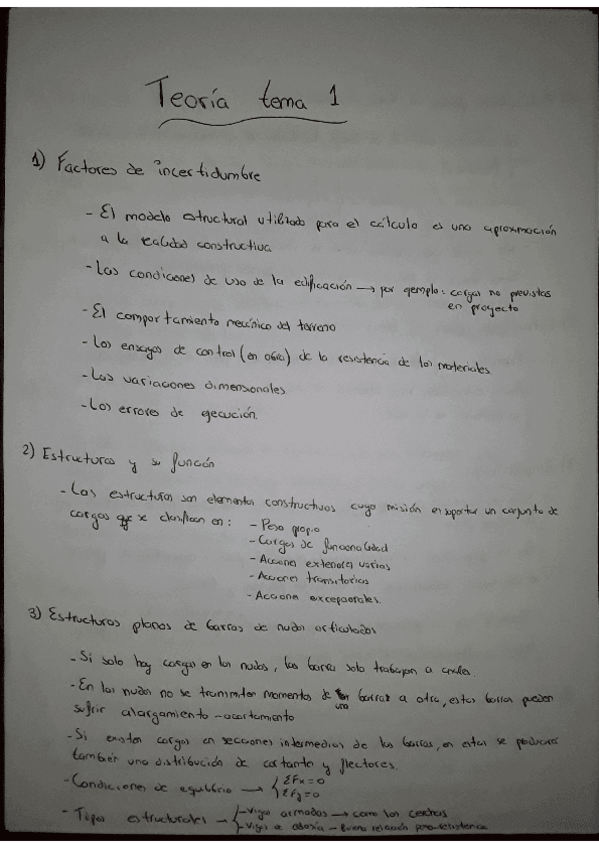 Teoría tema 1
1) Factores de incertidumbre
- El modelo estructural utilizado para el cálculo es una aproximación
a la realidad constructiva
- Las condiciones de uso de la edificación → por ejemplo: cargas no previstas
en proyecto
- El comportamiento mecánico del terreno
- Los ensayos de control (en obra) de la resistencia de los materiales
- Las variaciones dimensionales
- Los errores de ejecución.
2) Estructuras y su función
- Las estructuras son elementos constructivos cuya misión es soportar un conjunto de
cargas que se clasifican en: - Peso propio
- Cargas de funcionalidad
- Acciones exteriores varias
- Acciones transitorias
- Acciones excepcionales.
3) Estructuras planas de barras de nudos articulados
- Si solo hay cargas en los nudos, las barras solo trabajan a axiles.
- En los nudos no se transmiten momentos de una barra a otra, estas barras pueden
sufrir alargamiento - acortamiento
- Si existen cargas en secciones intermedias de las barras, en estas se producen
también una distribución de cortante y flectores.
- Condiciones de equilibrio → { ΣFx = 0
ΣFy = 0
- Tipos estructurales → { - Vigas armadas → como las cerchas
- Vigas a celosía - Buena relación peso-resistencia